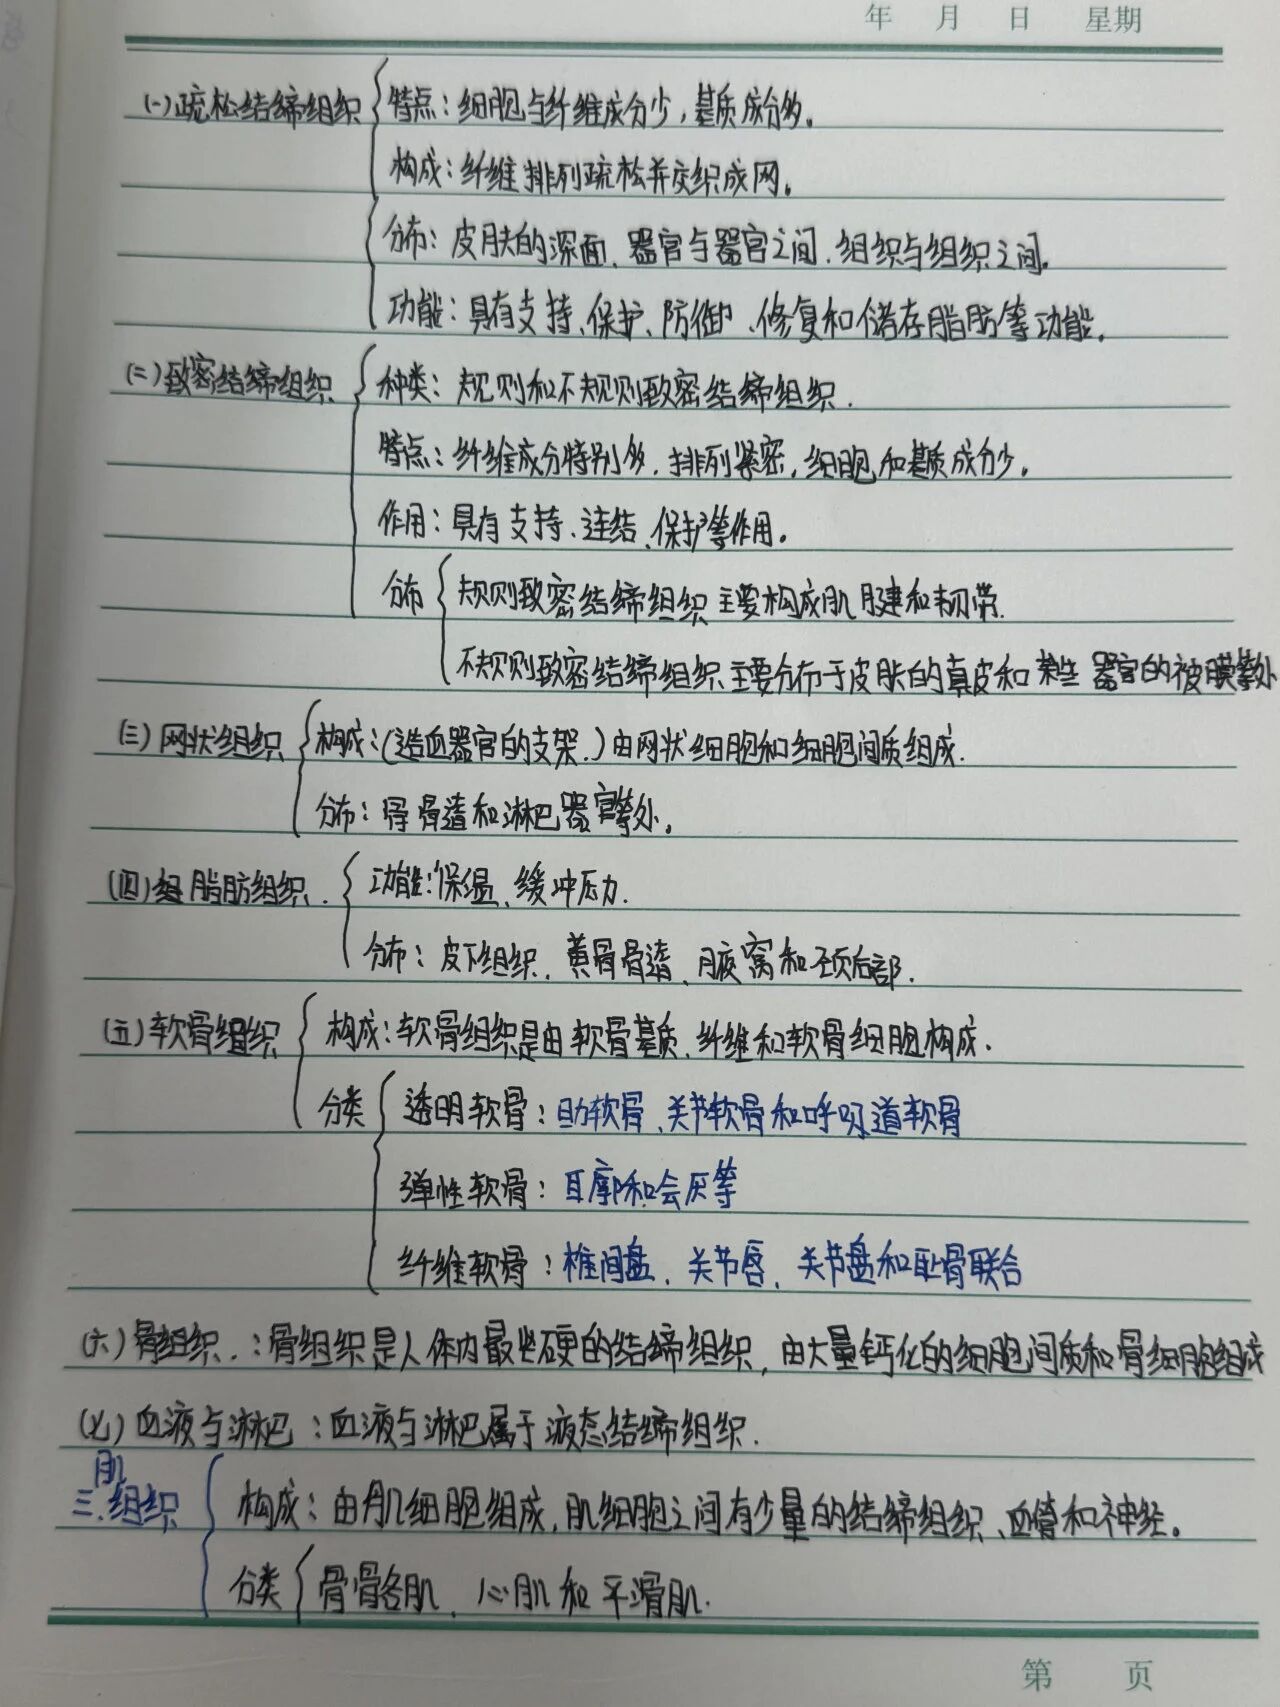 年 月 日 星期
(一)疏松结缔组织 特点：细胞与纤维成分少，基质成分多。
构成：纤维排列疏松并交织成网。
分布：皮肤的深面、器官与器官之间、组织与组织之间。
功能：具有支持、保护、防御、修复和储存脂肪等功能。
(二)致密结缔组织 种类：规则和不规则致密结缔组织.
特点：纤维成分特别多，排列紧密，细胞和基质成分少。
作用：具有支持、连结、保护等作用。
分布 规则致密结缔组织主要构成肌腱和韧带.
不规则致密结缔组织主要分布于皮肤的真皮和某些器官的被膜等处
(三)网状组织 构成：(造血器官的支架.)由网状细胞和细胞间质组成.
分布：骨骨遀和淋巴器官等处。
(四)组脂肪组织. 功能：保温、缓冲压力.
分布：皮下组织、黄骨骨遀、腋窝和颈后部.
(五)软骨组织 构成：软骨组织是由软骨基质、纤维和软骨细胞构成.
分类 透明软骨：肋软骨、关节软骨和呼吸道软骨
弹性软骨：耳廓和会厌等
纤维软骨：椎间盘、关节唇、关节盘和耻骨联合
(六)骨组织.：骨组织是人体内最坚硬的结缔组织，由大量钙化的细胞间质和骨细胞组成
(七)血液与淋巴：血液与淋巴属于液态结缔组织.
三.肌组织 构成：由肌细胞组成，肌细胞之间有少量的结缔组织、血管和神经。
分类 骨骨各肌、心肌和平滑肌.
第 页